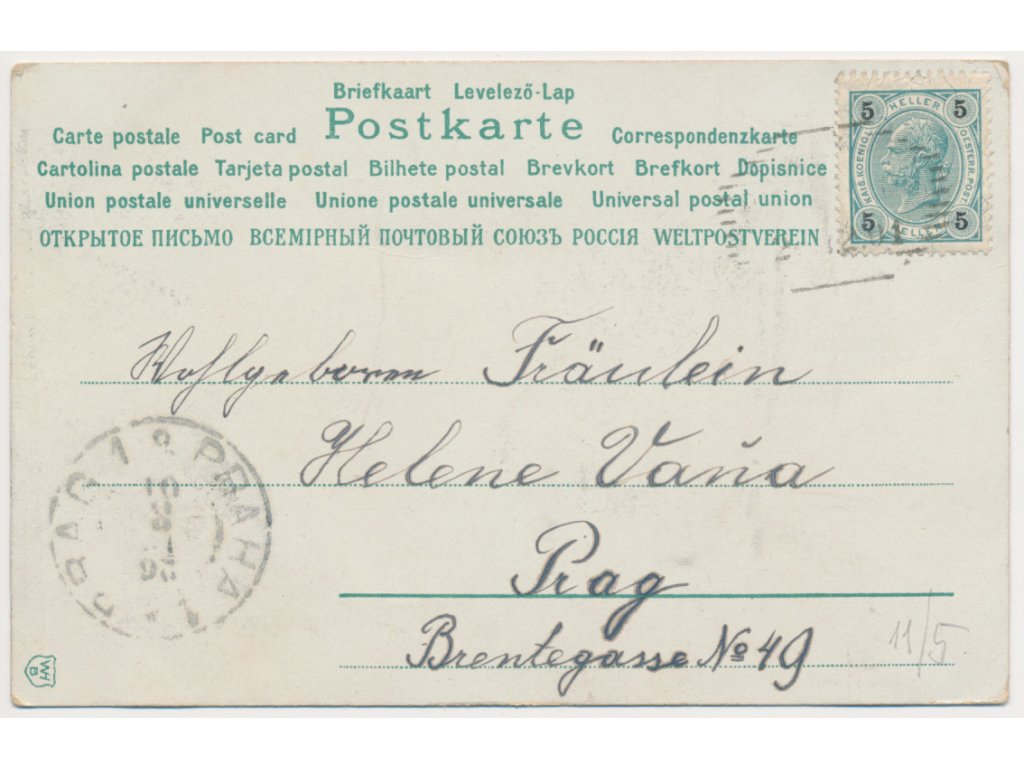 Briefkaart Levelező-Lap
Carte postale Post card Postkarte Correspondenzkarte
Cartolina postale Tarjeta postal Bilhete postal Brevkort Brefkort Dopisnice
Union postale universelle Unione postale universale Universal postal union
ОТКРЫТОЕ ПИСЬМО ВСЕМІРНЫЙ ПОЧТОВЫЙ СОЮЗЪ РОССІЯ WELTPOSTVEREIN
5 HELLER 5
KAIS. KOENIGL. OESTERR. POST
5 HELLER 5
Wohlgeboren Fräulein
Helene Vaňa
Prag
Brentegasse No 49
PRAG 1 PRAHA 1
11/5.